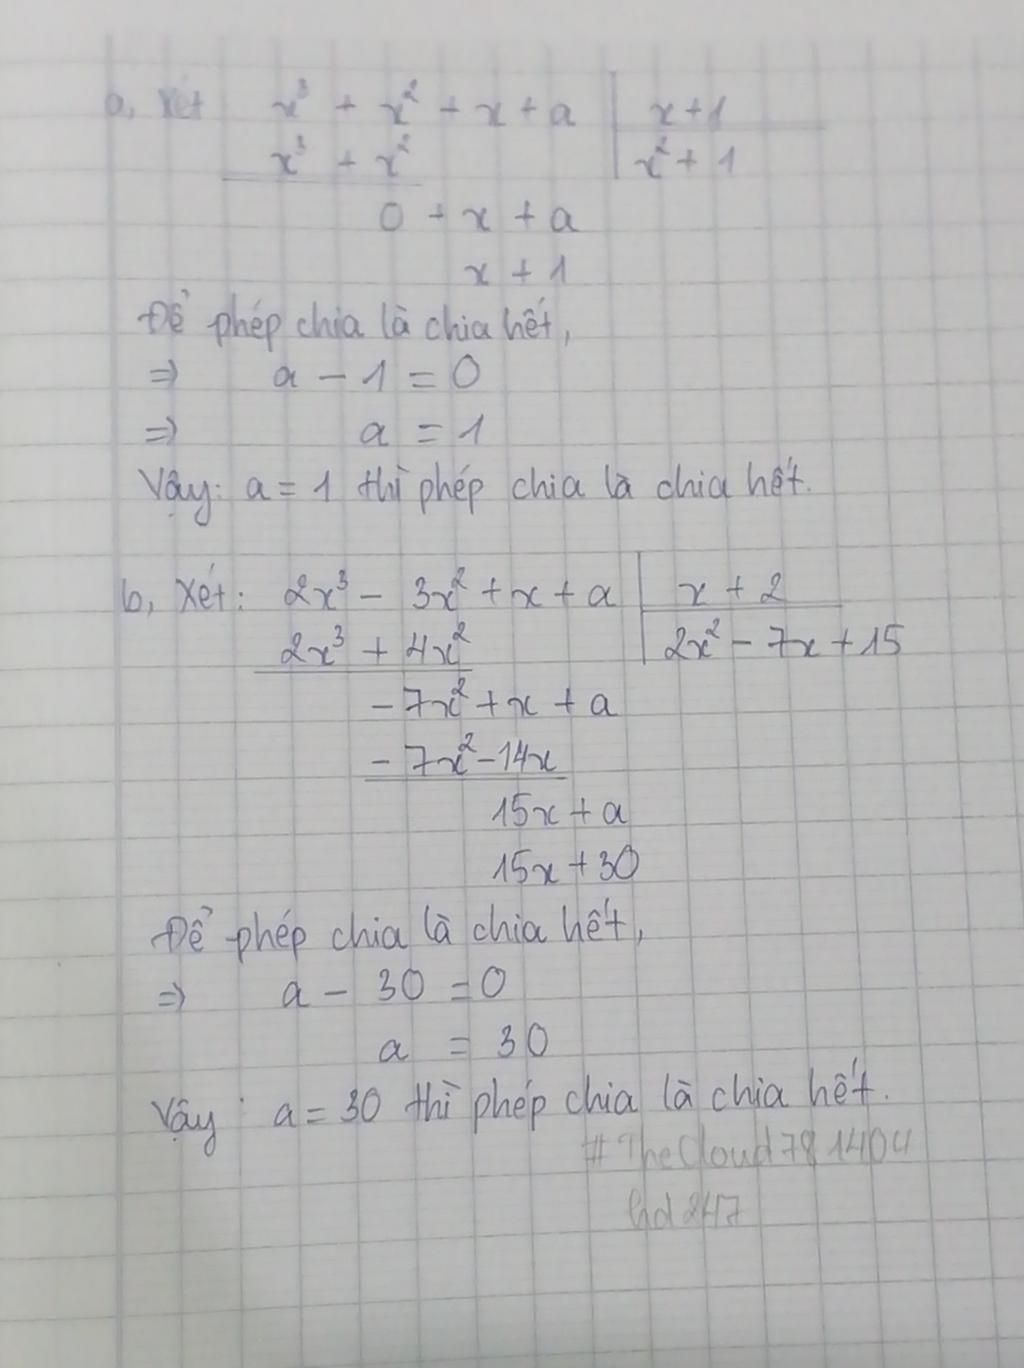 a, Xét x³ + x² + x + a | x+1
x³ + x² | x² + 1
0 + x + a
x + 1
Để phép chia là chia hết,
=> a - 1 = 0
=> a = 1
Vậy: a = 1 thì phép chia là chia hết.
b, Xét: 2x³ - 3x² + x + a | x + 2
2x³ + 4x² | 2x² - 7x + 15
- 7x² + x + a
- 7x² - 14x
15x + a
15x + 30
Để phép chia là chia hết,
=> a - 30 = 0
a = 30
Vậy : a = 30 thì phép chia là chia hết.
# TheCloud781404
hd247